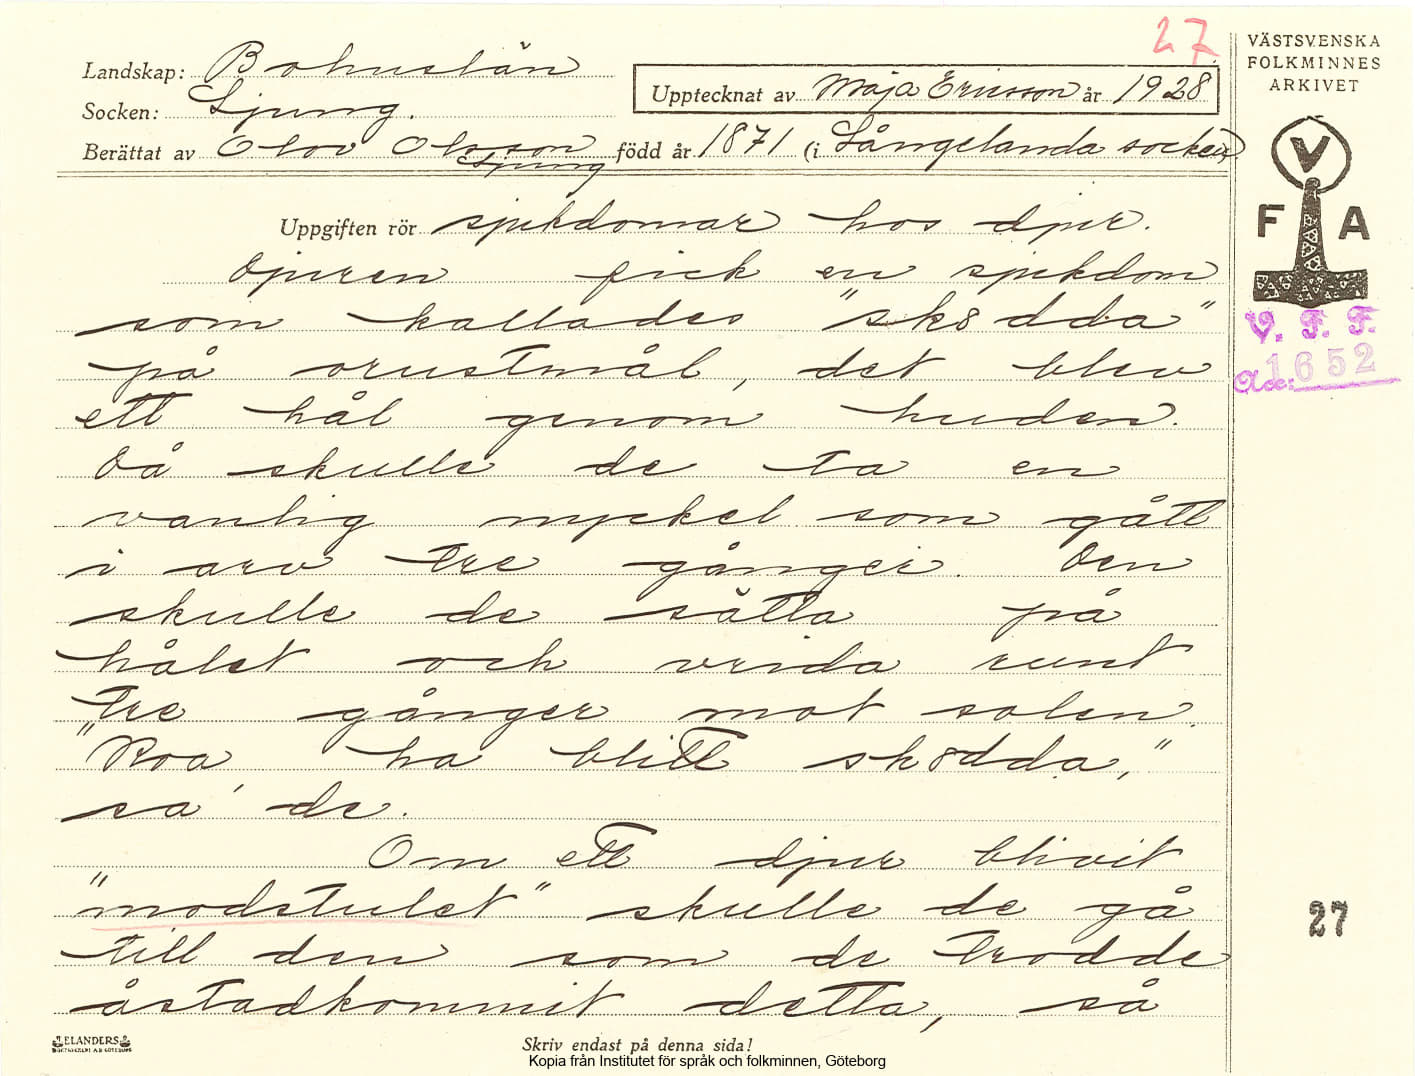 27.
Landskap: Bohuslän
Socken: Ljung.
Upptecknat av Maja Ericsson år 1928
Berättat av Olov Olsson född år 1871 (i Långelanda socken)
Ljung
VÄSTSVENSKA
FOLKMINNES
ARKIVET
V
F A
V. F. F.
Acc: 1652
Uppgiften rör sjukdomar hos djur.
Djuren fick en sjukdom
som kallades "sködda"
på orustmål, det blev
ett hål genom huden.
Då skulle de ta en
vanlig nyckel som gått
i arv tre gånger. Den
skulle de sätta på
hålet och vrida runt
tre gånger mot solen.
"Koa ha blitt sködda,"
sa' de.
Om ett djur blivit
"modstulet" skulle de gå
till den som de trodde
åstadkommit detta, så
27
ELANDERS
BOKTRYCKERI A.B. GÖTEBORG
Skriv endast på denna sida!
Kopia från Institutet för språk och folkminnen, Göteborg